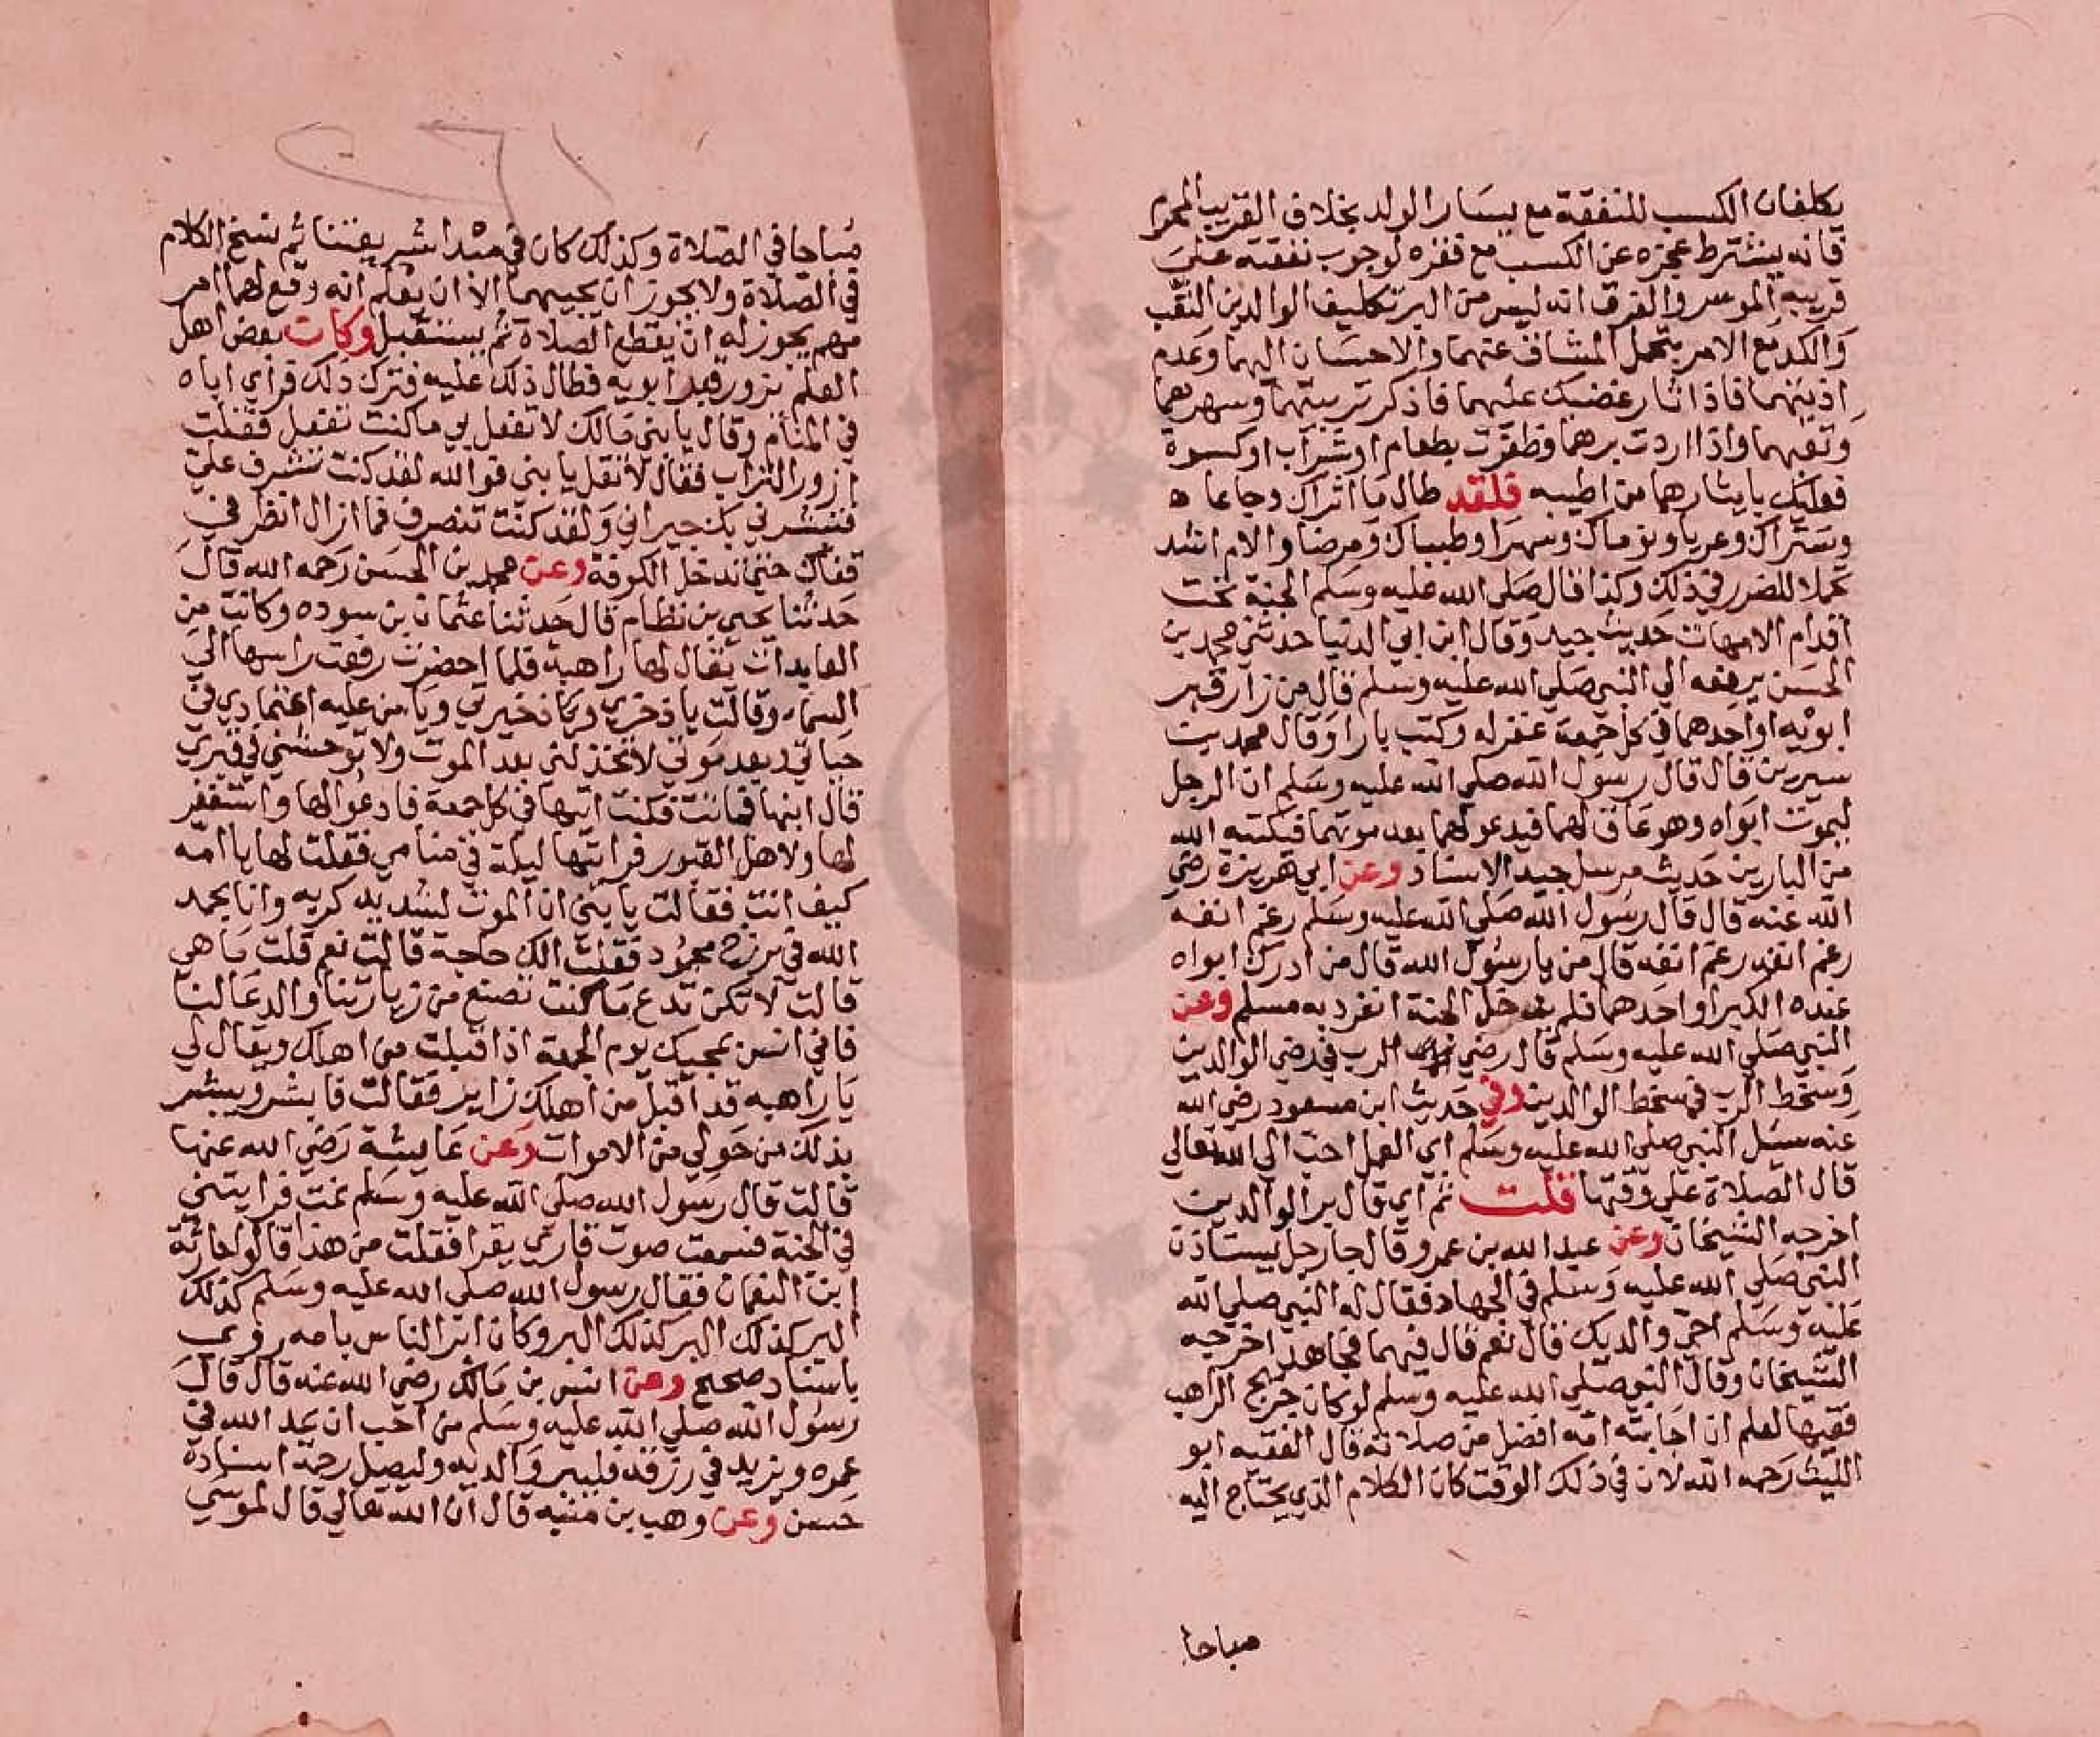 يكلفان الكسب للنفقة مع يسار الولد بخلاف القريب المحرم
فانه يشترط عجزه عن الكسب مع فقره لوجوب نفقته على
قريبه الموسر والفرق انه ليس من البر تكليف الوالدين التعب
والكد مع الامر بتحمل المشاق عنهما والاحسان اليهما وعدم
اذيتهما فاذا ثار غضبك عليهما فاذكر تربيتهما وسهرهما
وتعبهما واذا اردت برهما وظفرت بطعام او شراب او كسوة
فعليك بايثارهما من اطيبه فلقد طال ما اثراك وجاعا ه
وستراك وعريا ونوماك وسهرا وطيباك ومرضا والام اشد
تحملا للضرر في ذلك وكذا قال صلى الله عليه وسلم الجنة تحت
اقدام الامهات حديث جيد وقال ابن ابي الدنيا حدثني محمد بن
الحسن يرفعه الى النبي صلى الله عليه وسلم قال من زار قبر
ابويه او احدهما في كل جمعة غفر له وكتب بارا وقال محمد بن
سيرين قال قال رسول الله صلى الله عليه وسلم ان الرجل
ليموت ابواه وهو عاق لهما فيدعو لهما بعد موتهما فيكتبه الله
من البارين حديث مرسل جيد الاسناد وعن ابي هريرة رضي
الله عنه قال قال رسول الله صلى الله عليه وسلم رغم انفه
رغم انفه رغم انفه قال من يا رسول الله قال من ادرك ابواه
عنده الكبر او احدهما فلم يدخل الجنة انفرد به مسلم وعن
النبي صلى الله عليه وسلم قال رضي الرب في رضي الوالدين
وسخط الرب في سخط الوالدين وفي حديث ابن مسعود رضي الله
عنه سئل النبي صلى الله عليه وسلم اي العمل احب الى الله تعالى
قال الصلاة على وقتها قلت ثم اي قال بر الوالدين
اخرجه الشيخان وعن عبد الله بن عمرو قال جا رجل يستاذن
النبي صلى الله عليه وسلم في الجهاد فقال له النبي صلى الله
عليه وسلم احي والديك قال نعم قال فيهما فجاهد اخرجه
الشيخان وقال النبي صلى الله عليه وسلم لو كان جريج الراهب
فقيها لعلم ان اجابته امه افضل من صلاته قال الفقيه ابو
الليث رحمه الله لان في ذلك الوقت كان الكلام الذي يحتاج اليه
مباحا
مباحا في الصلاة وكذلك كان في مبدا شريعتنا ثم نسخ الكلام
في الصلاة ولا يجوز ان يجيبهما الا ان يعلم انه وقع لهما امر
مهم يجوز له ان يقطع الصلاة ثم يستقبل وكان بعض اهل
العلم يزور قبر ابويه فطال ذلك عليه فترك ذلك فراي اباه
في المنام وقال يا بني مالك لا تفعل بي ما كنت تفعل فقلت
ازور التراب فقال لا تقل يا بني فوالله لقد كنت تشرف علي
فتبشرني بك جيراني ولقد كنت تنصرف فما ازال انظر في
قفاك حتى تدخل الكوفة وعن محمد بن الحسن رحمه الله قال
حدثنا يحيى بن نظام قال حدثنا عثمان بن سوده وكانت من
العابدات يقال لها راهبة فلما احضرت رفعت راسها الى
السماء وقالت يا ذخري ويا ذخيرتي ويا من عليه اعتمادي في
حياتي وبعد موتي لا تخذلني بعد الموت ولا توحشني في قبري
قال ابنها فماتت فكنت اتيها في كل جمعة فادعوا لها واستغفر
لها ولاهل القبور فرايتها ليلة في منامي فقلت لها يا امه
كيف انت فقالت يا بني ان الموت لشديد كربه وانا بحمد
الله في برزخ محمود فقلت الك حاجة قالت نعم قلت ما هي
قالت لا تكن تدع ما كنت تصنع من زيارتنا والدعا لنا
فاني انس بمجيك يوم الجمعة اذا قبلت من اهلك ويقال لي
يا راهبه قد اقبل من اهلك زاير فقالت فابشر ويبشر
بذلك من حولي من الاموات وعن عايشة رضي الله عنها
قالت قال رسول الله صلى الله عليه وسلم نمت فرايتني
في الجنة فسمعت صوت قاري يقرا فقلت من هذا قالوا حارثة
ابن النعمان فقال رسول الله صلى الله عليه وسلم كذلك
البر كذلك البر كذلك البر وكان ابر الناس بامه روي
باسناد صحيح وعن انس بن مالك رضي الله عنه قال قال
رسول الله صلى الله عليه وسلم من احب ان يمد الله في
عمره ويزيد في رزقه فليبر والديه وليصل رحمة اسناده
حسن وعن وهب بن منبه قال ان الله تعالي قال لموسي